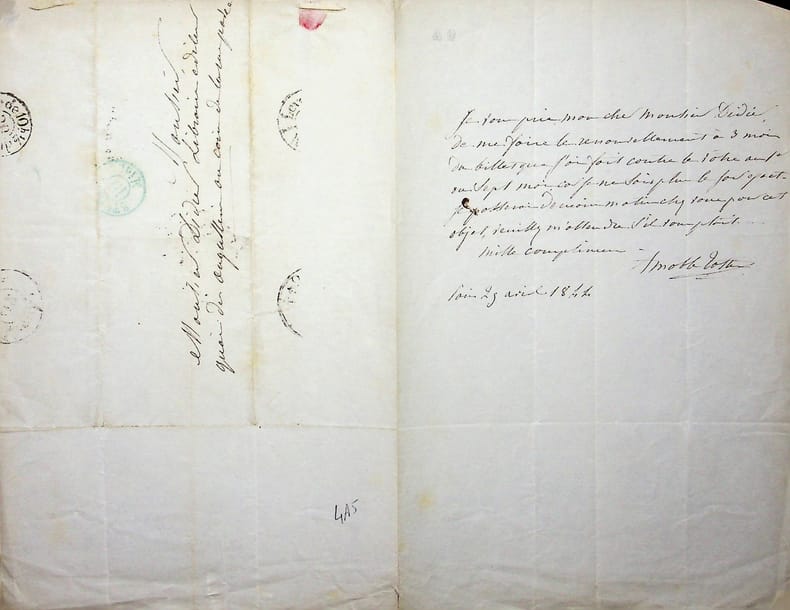 Monsieur
Monsieur Didier Libraire editeur
quai des augustins au coin de la rue pavée
Je vous prie mon cher Monsieur Didier
de me faire le renouvellement à 3 mois
du billet que j'ai fait contre le votre au
ou Sept mon je ne sais plus le
je passerai demain matin chez vous pour cet
objet, veuillez m'attendre S'il vous plait
mille complimens
Paris 29 avril 1844
4A5